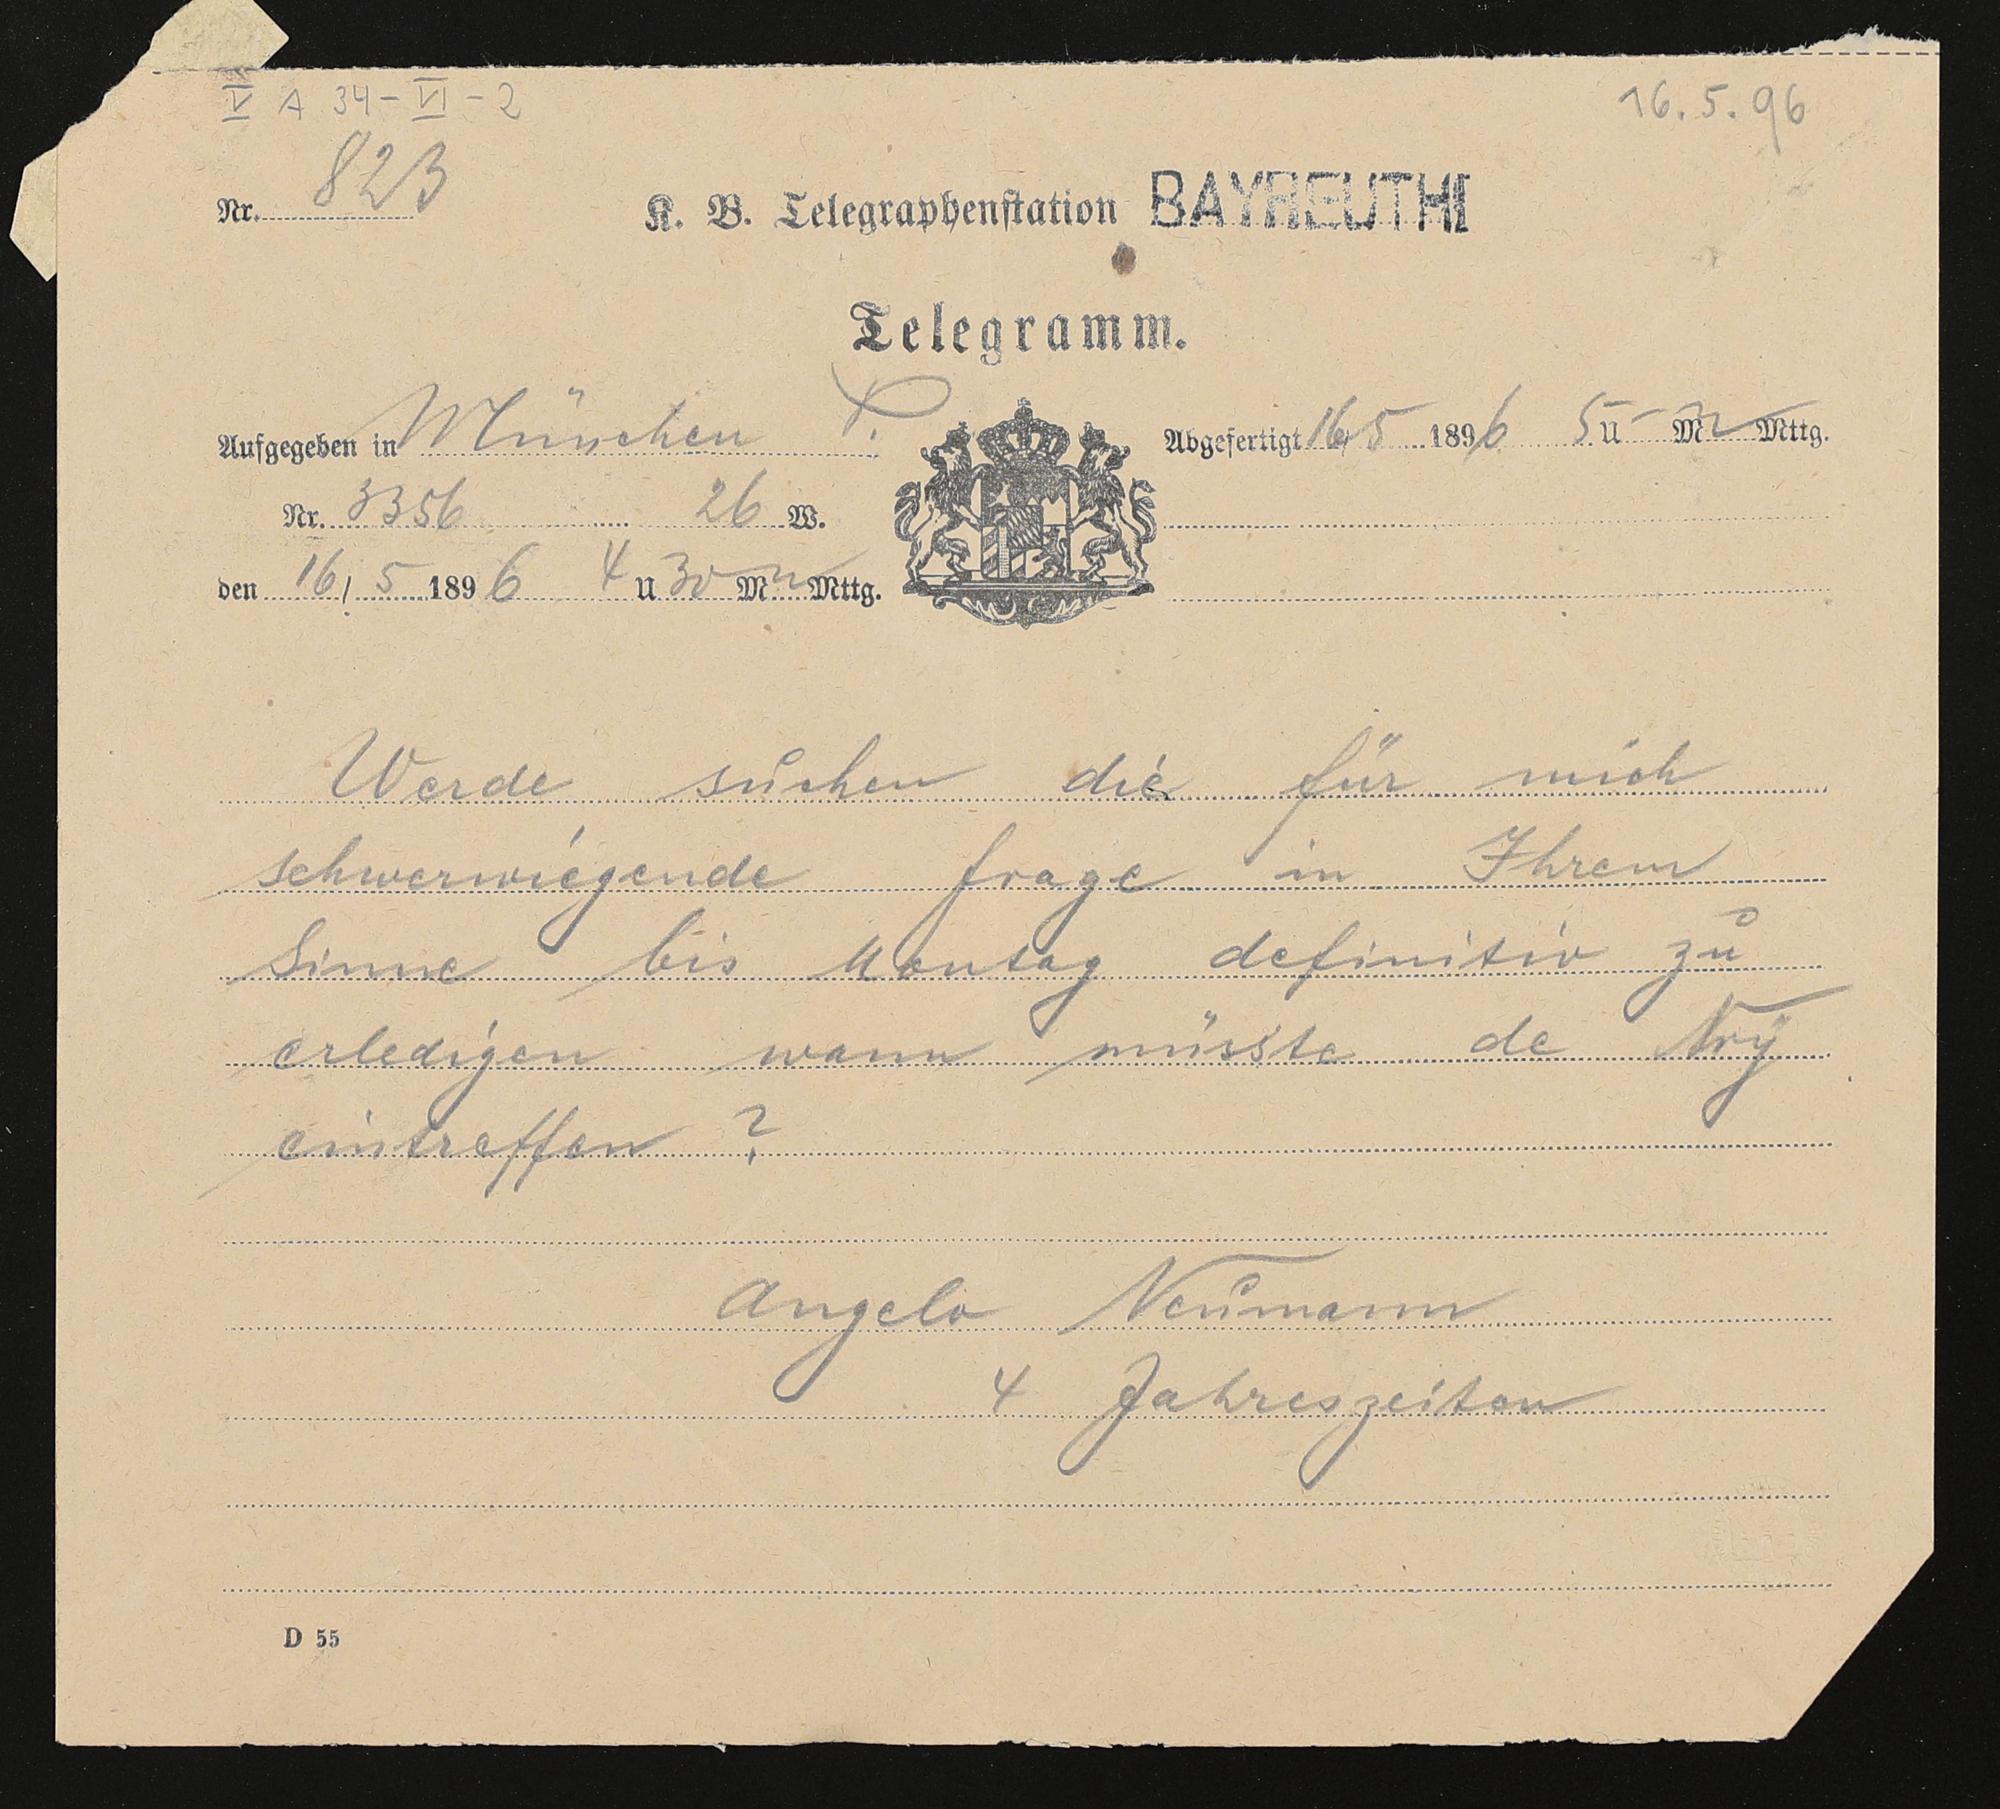 V A 34-VI-2
16.5.96
Nr. 823
K. B. Telegraphenstation BAYREUTH
Telegramm.
Aufgegeben in München
Abgefertigt 16/5 1896 5 U - M Mttg.
Nr. 3356 26 W.
den 16/5 1896 4 U 30 M Mttg.
Werde suchen die für mich
schwerwiegende frage in Ihrem
Sinne bis Montag definitiv zu
erledigen wann müsste de
eintreffen ?
Angelo Neumann
4 Jahreszeiten
D 55